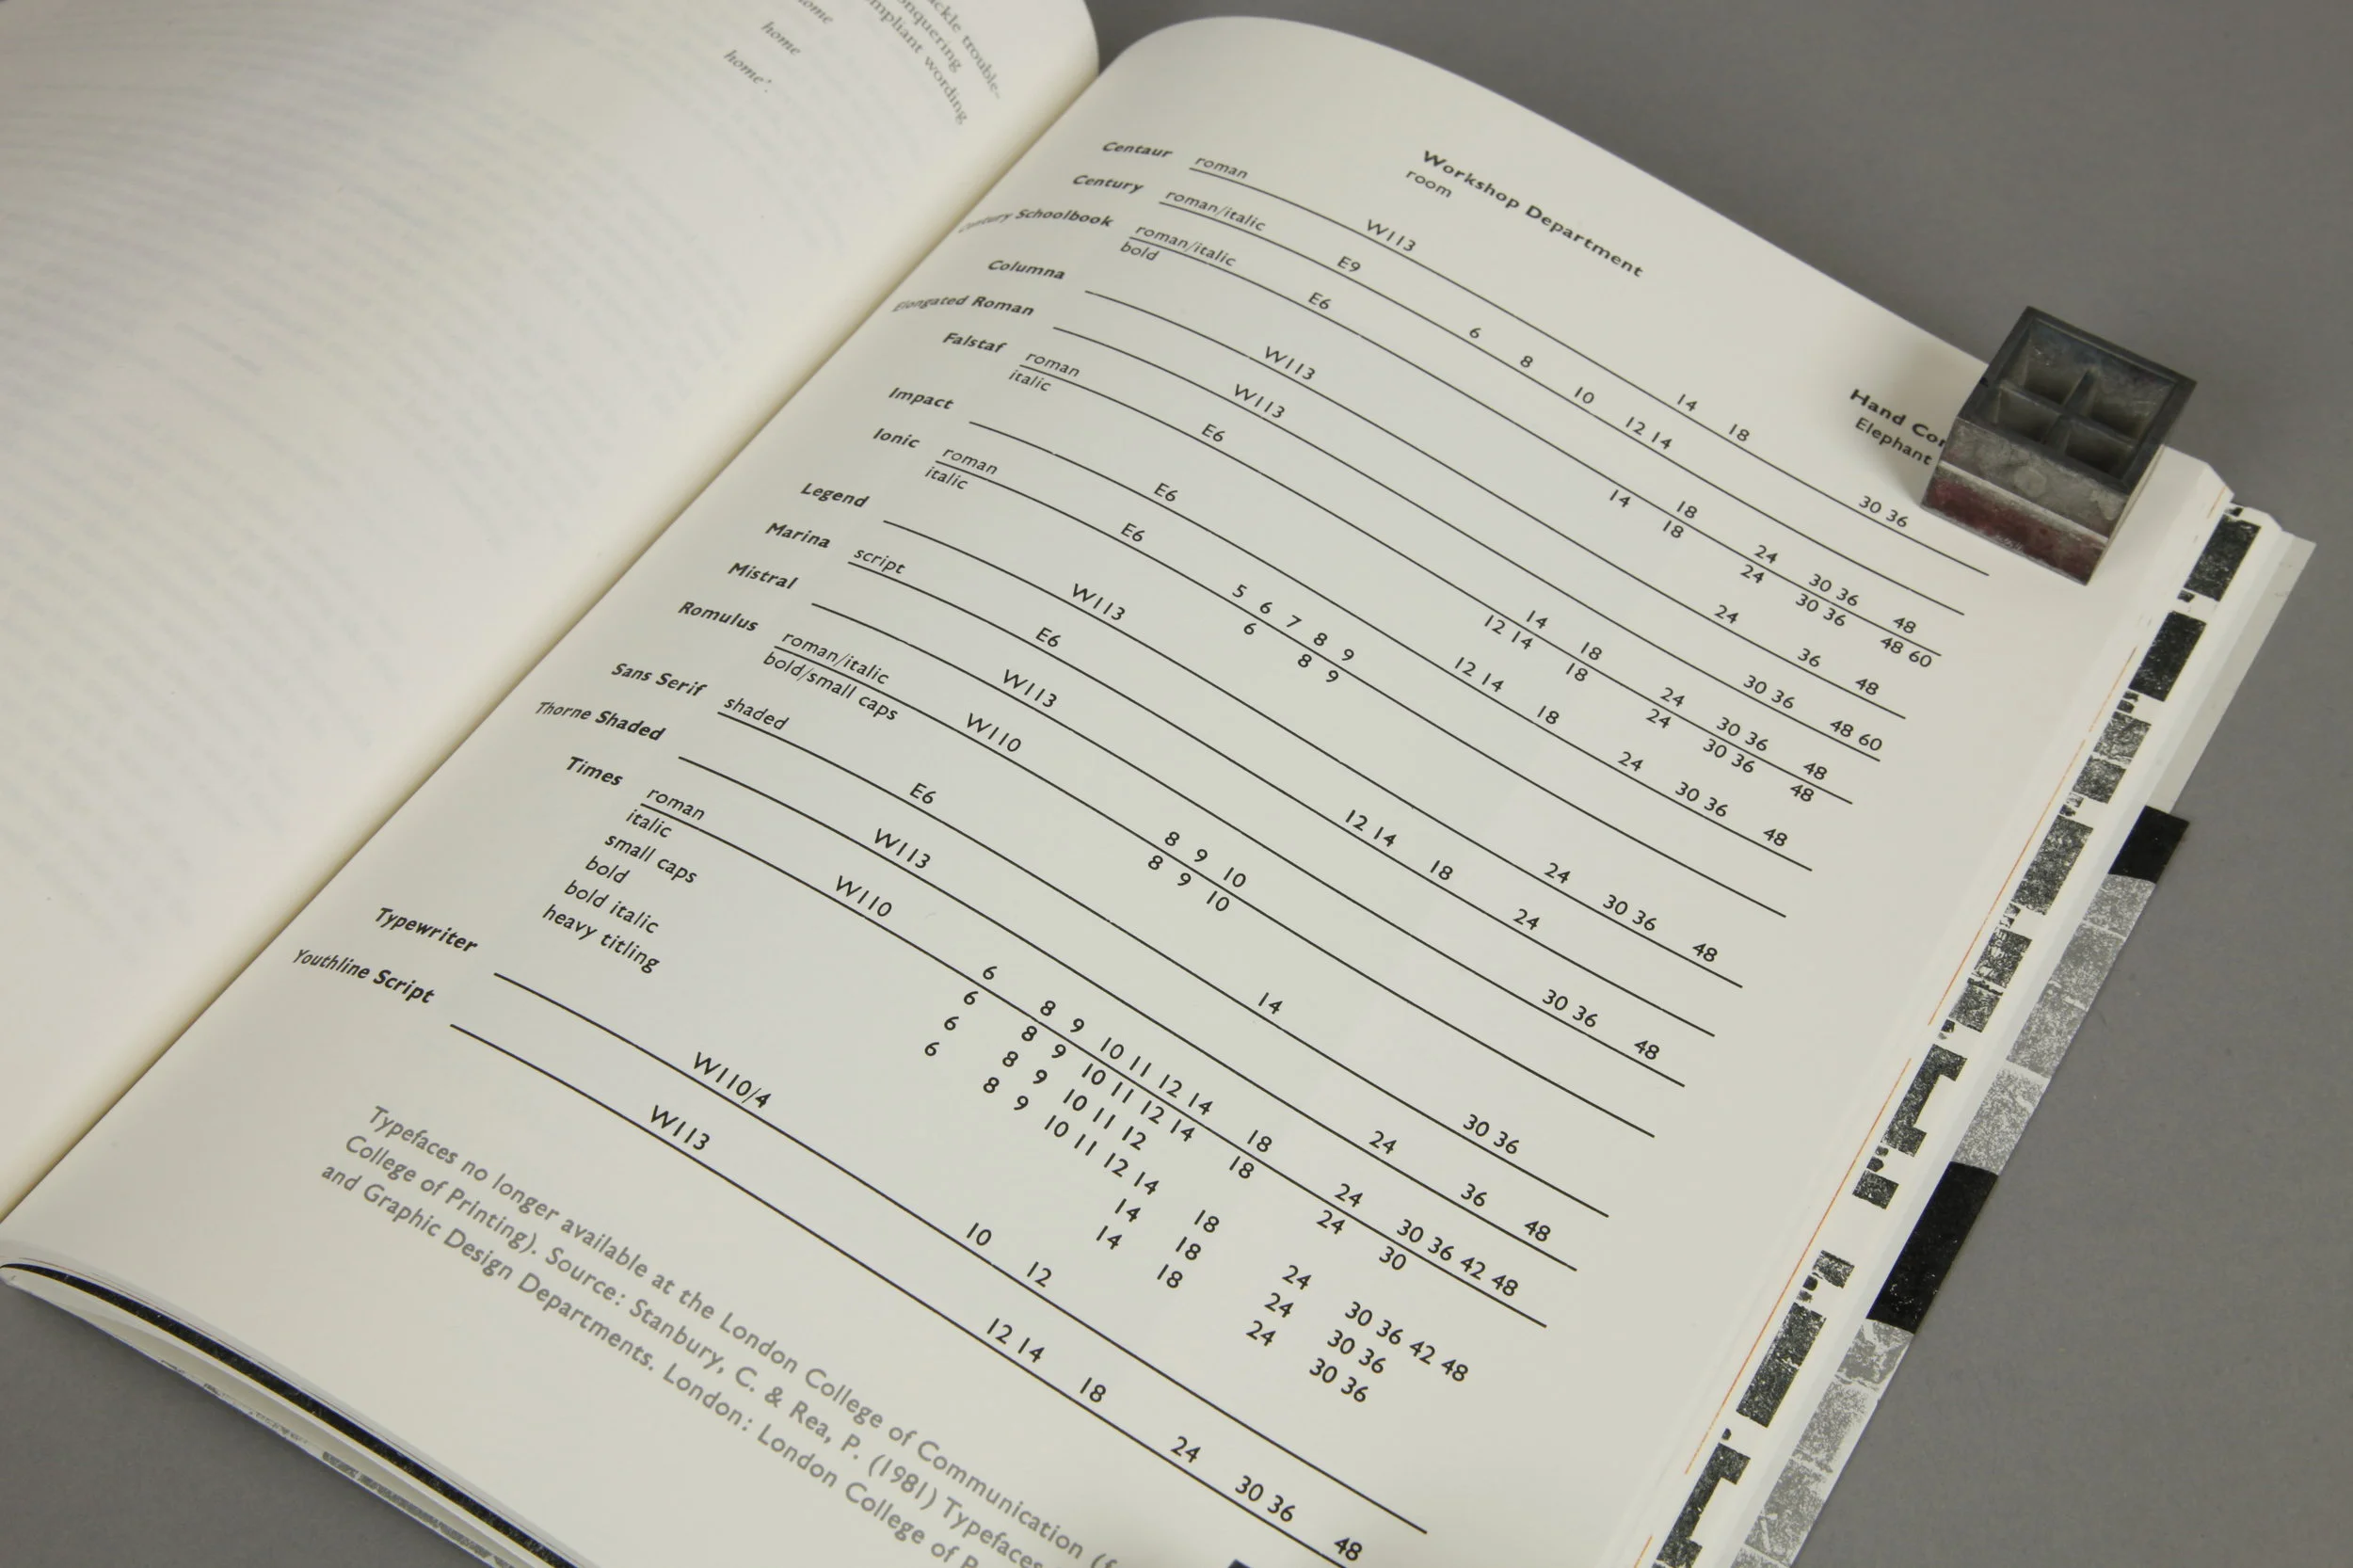 home
home'.
Workshop Department
room
Centaur roman W113 14 18 30 36
Century roman/italic E9 6 8 10 12 14
Century Schoolbook roman/italic E6 18 24 30 36 48
bold 14 18 24 30 36 48 60
Columna W113 24 36 48
Elongated Roman W113 30 36 48 60
Falstaf roman E6 14 18 24 30 36 48
italic 12 14 18 24 30 36 48
Impact E6 12 14 18 24 30 36 48
Ionic roman E6 5 6 7 8 9
italic 6 8 9
Legend W113 24 30 36 48
Marina script E6 12 14 18 24
Mistral W113 30 36 48
Romulus roman/italic W110 8 9 10
bold/small caps 8 9 10
Sans Serif shaded E6 14 30 36
Thorne Shaded W113 24 36 48
Times roman W110 6 8 9 10 11 12 14 18 24 30 36 42 48
italic 6 8 9 10 11 12 14 18 24 30
small caps 6 8 9 10 11 12
bold 6 8 9 10 11 12 14 18 24 30 36 42 48
bold italic 14 18 24 30 36
heavy titling 14 18 24 30 36
Typewriter W110/4 10 12
Youthline Script W113 12 14 18 24 30 36 48
Hand
Elephant
Typefaces no longer available at the London College of Communication
College of Printing). Source: Stanbury, C. & Rea, P. (1981) Typefaces
and Graphic Design Departments. London: London College of